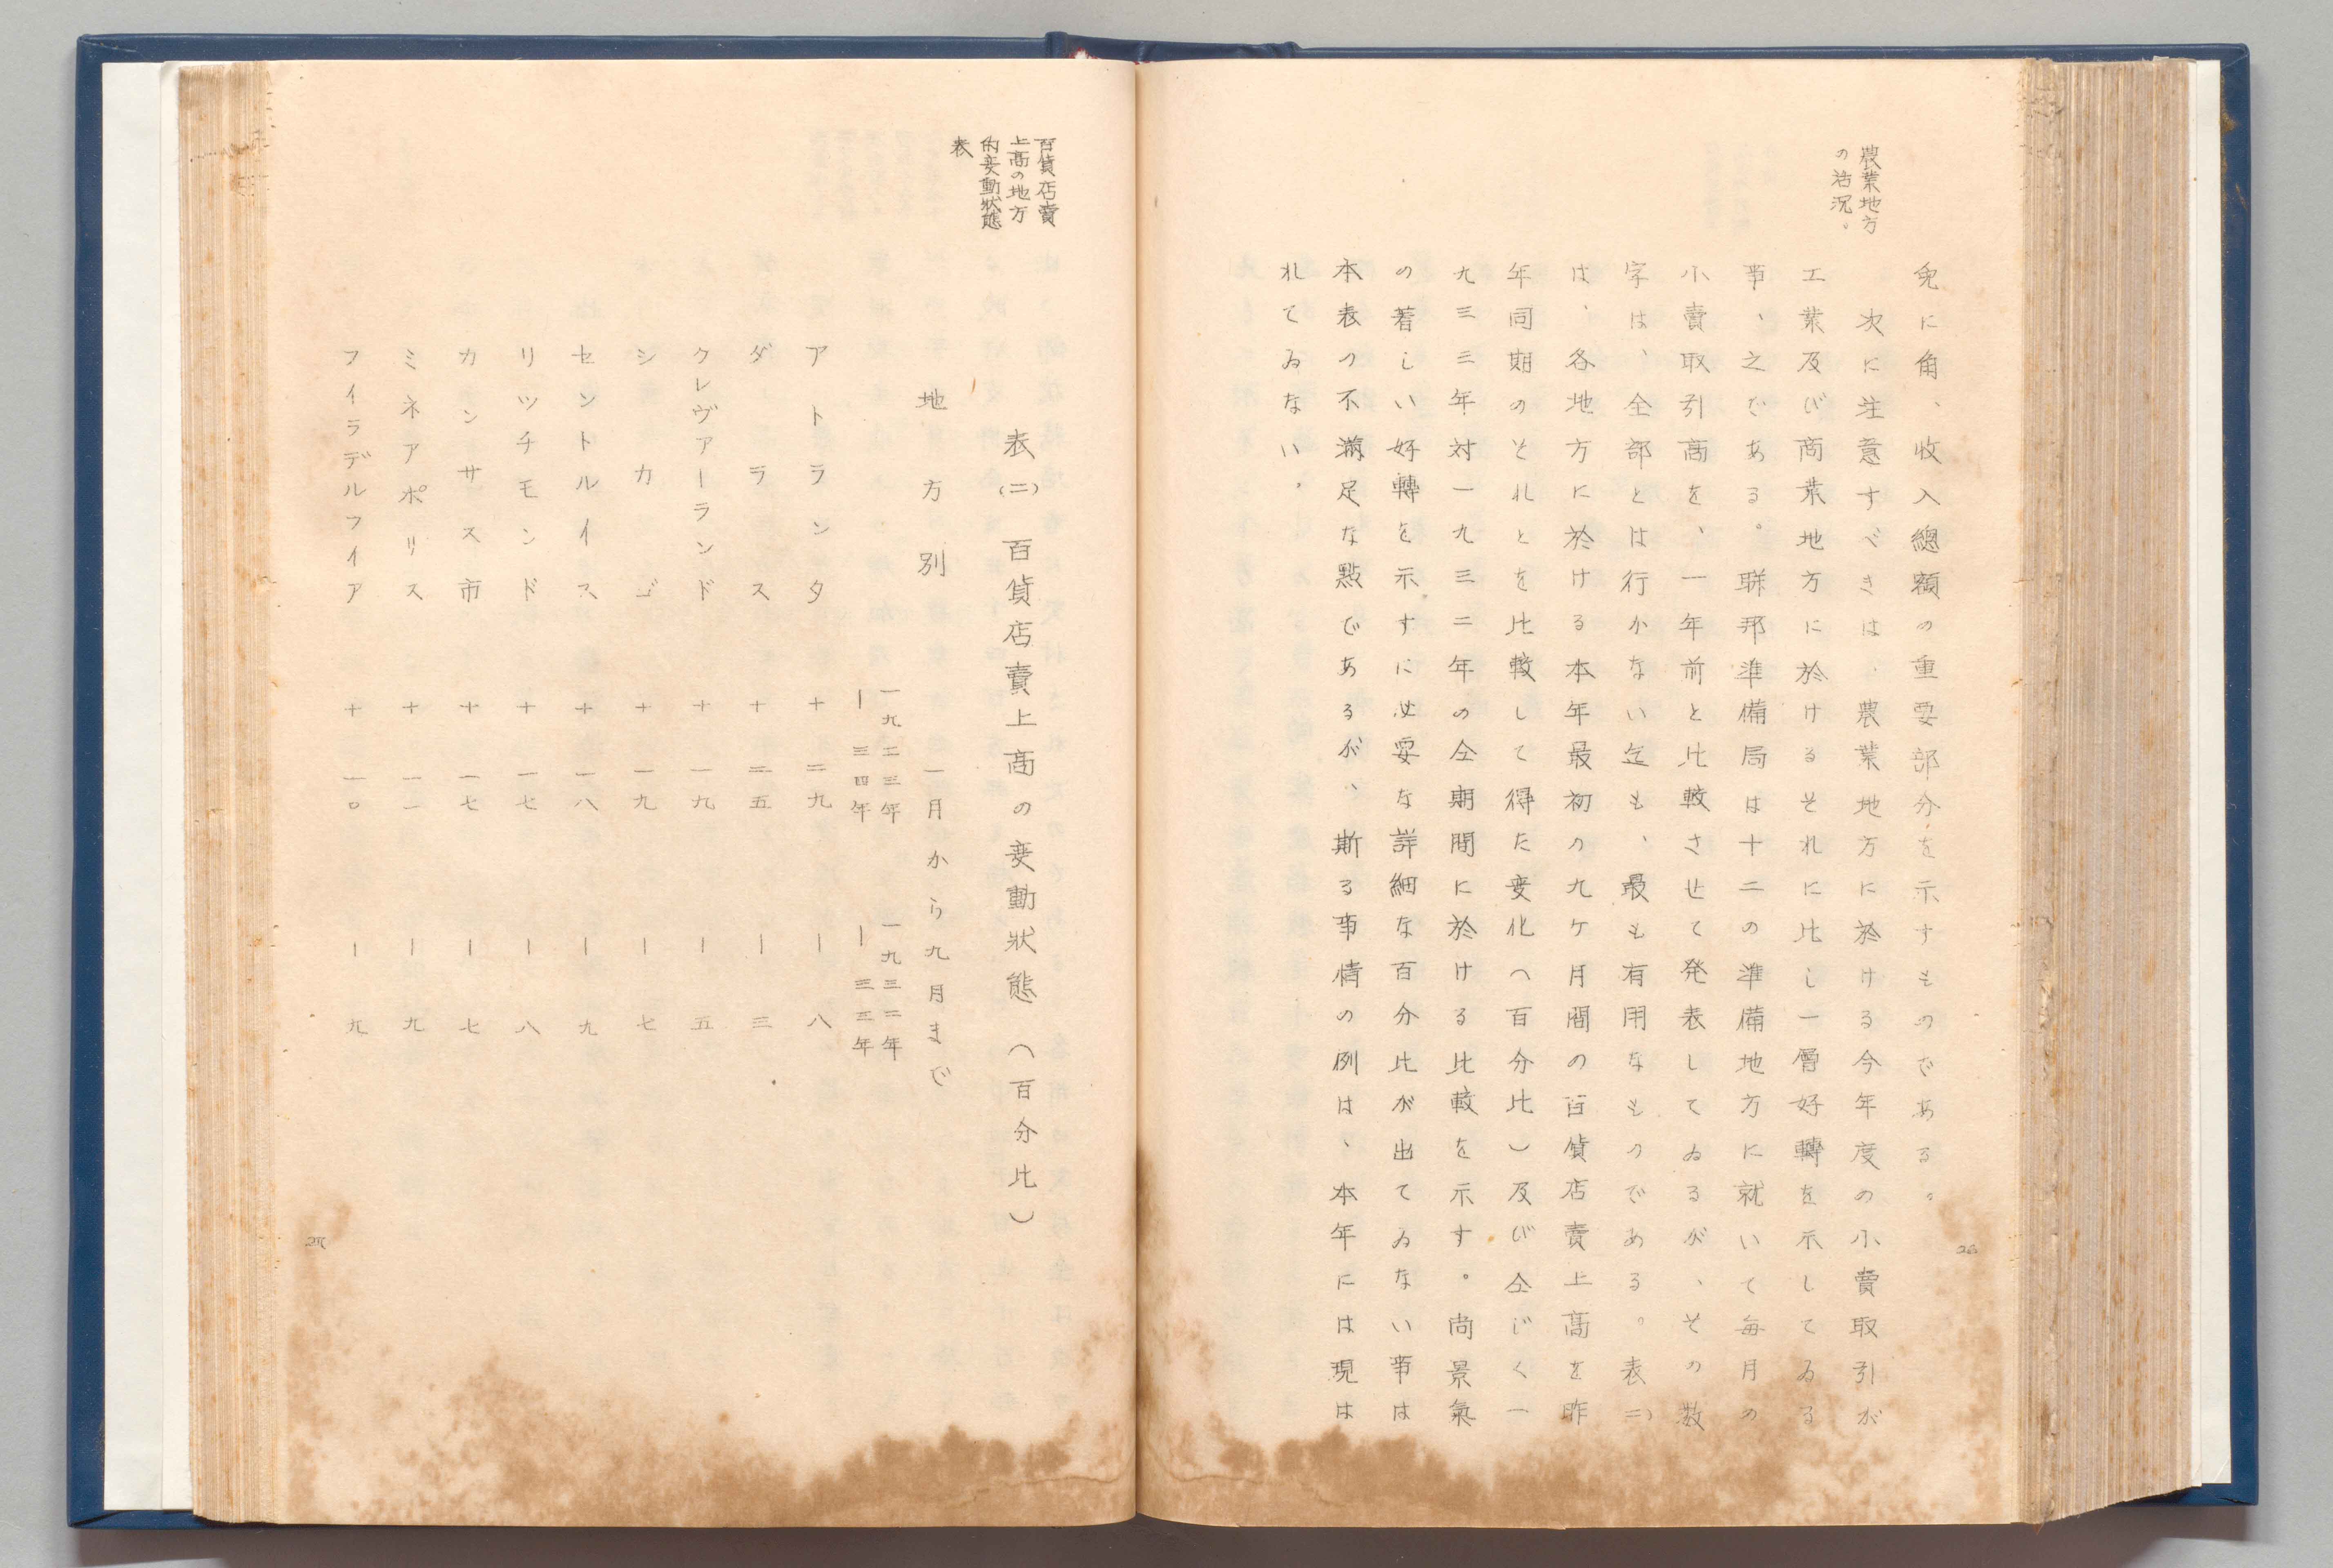 農業地方
の活況。
兎に角、收入總額の重要部分を示すものである。
次に注意すべきは、農業地方に於ける今年度の小賣取引が
工業及び商業地方に於けるそれに比し一層好轉を示してゐる
事、之である。聯邦準備局は十二の準備地方に就いて毎月の
小賣取引高を、一年前と比較させて発表してゐるが、その数
字は、全部とは行かない迄も、最も有用なものである。表(二)
は、各地方に於ける本年最初の九ケ月間の百貨店賣上高を昨
年同期のそれとを比較して得た変化(百分比)及び仝じく一
九三三年対一九三二年の仝期間に於ける比較を示す。尚景氣
の著しい好轉を示すに必要な詳細な百分比が出てゐない事は
本表の不満足な點であるが、斯る事情の例は、本年には現は
れてゐない。
26
百貨店賣
上高の地方
的変動狀態
表
表(二) 百貨店賣上高の変動狀態 (百分比)
地方別 一月から九月まで
一九三三年 一九三二年
ー三四年 ー三三年
アトランタ 十二九 ー八
ダラス 十二五 ー三
クレヴァーランド 十一九 ー五
シカゴ 十一九 ー七
セントルイス 十一八 ー九
リツチモンド 十一七 ー八
カンサス市 十一七 ー七
ミネアポリス 十一一 ー九
フイラデルフイア 十一〇 ー九